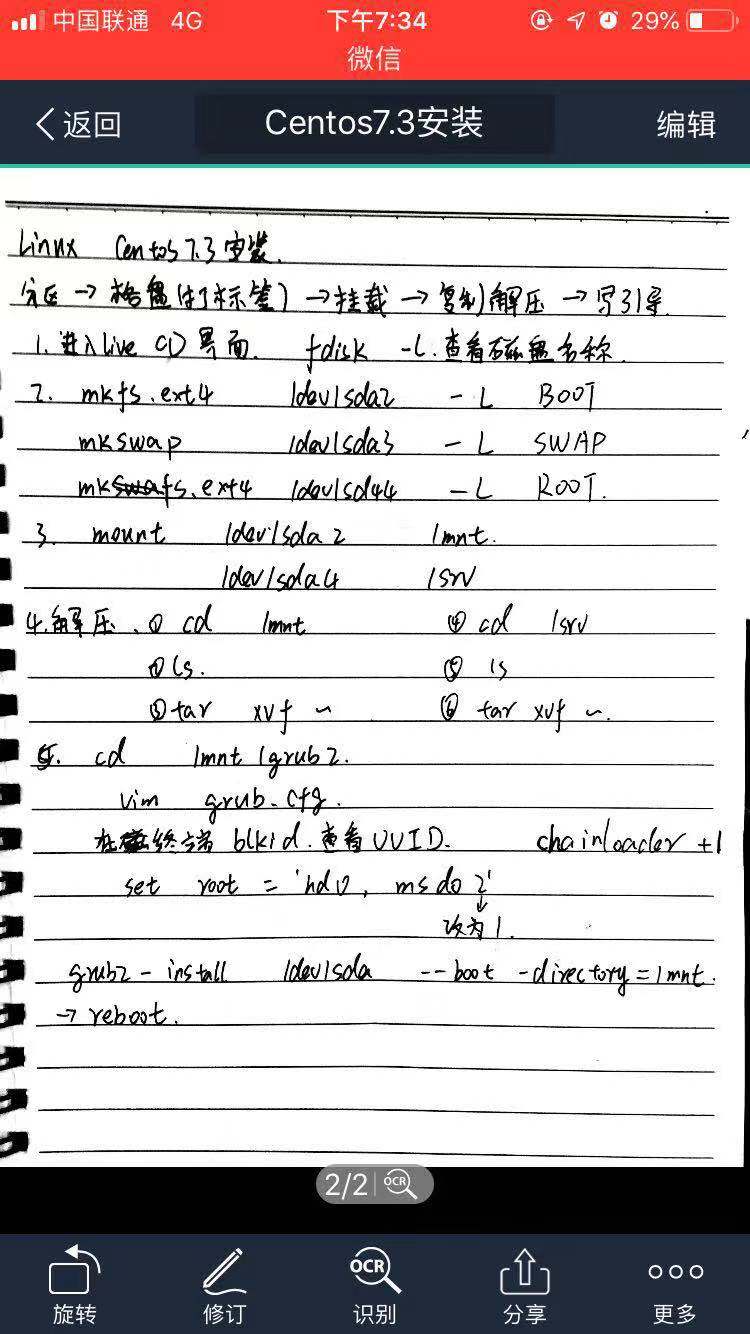 中国联通 4G 下午7:34 29%
微信
返回 Centos7.3安装 编辑
Linux Centos 7.3 安装.
分区 → 格盘(打标签) → 挂载 → 复制解压 → 写引导.
1. 进入live CD 界面. fdisk -L. 查看磁盘名称.
2. mkfs.ext4 /dev/sda2 -L BOOT
mkswap /dev/sda3 -L SWAP
mkfs.ext4 /dev/sd44 -L ROOT.
3. mount /dev/sda2 /mnt.
/dev/sda4 /srv
4.解压. ① cd /mnt ④ cd /srv
② ls. ⑤ ls
③ tar xvf ~ ⑥ tar xvf ~.
5. cd /mnt/grub2.
vim grub.cfg.
在终端 blkid. 查看UUID. chainloader +1
set root = 'hd0, msdo 2'
↓
改为 1.
grub2-install /dev/sda --boot-directory=/mnt.
→ reboot.
2/2 OCR
OCR
旋转 修订 识别 分享 更多